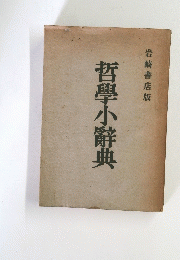 岩崎書店版
哲學小辭典